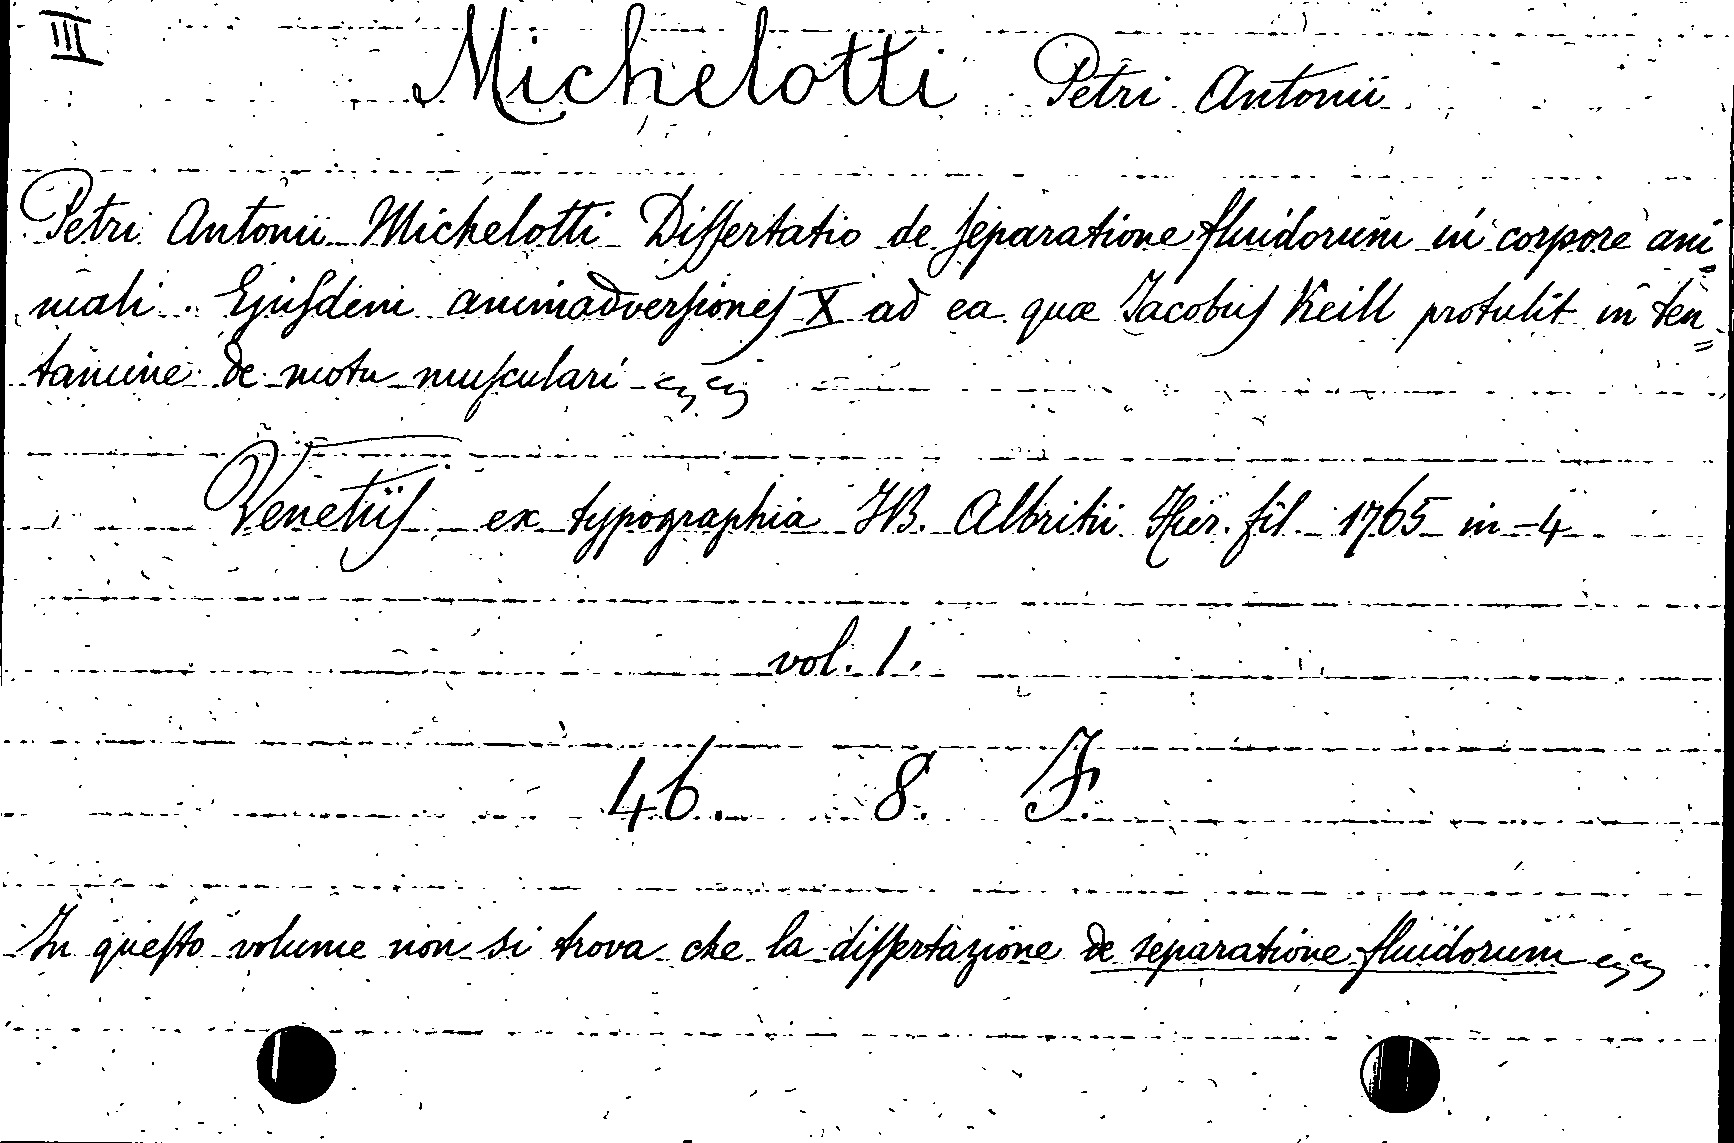 III
Michelotti Petri Antonii
Petri Antonii Michelotti Dissertatio de separatione fluidorum in corpore ani=
mali. Ejusdem animadversiones X ad ea quæ Jacobus Keill protulit in ten=
tamine de motu musculari
Venetiis ex typographia J.B. Albritii Hier. fil. 1765 in-4
vol. 1.
46. 8. F.
In questo volume non si trova che la dissertazione de separatione fluidorum